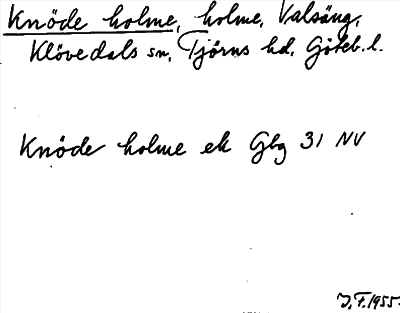 Knöde holme, holme, Valsäng,
Klövedals sn, Tjörns hd, Göteb. l.
Knöde holme ek Gbg 31 NV
J.F. 1955